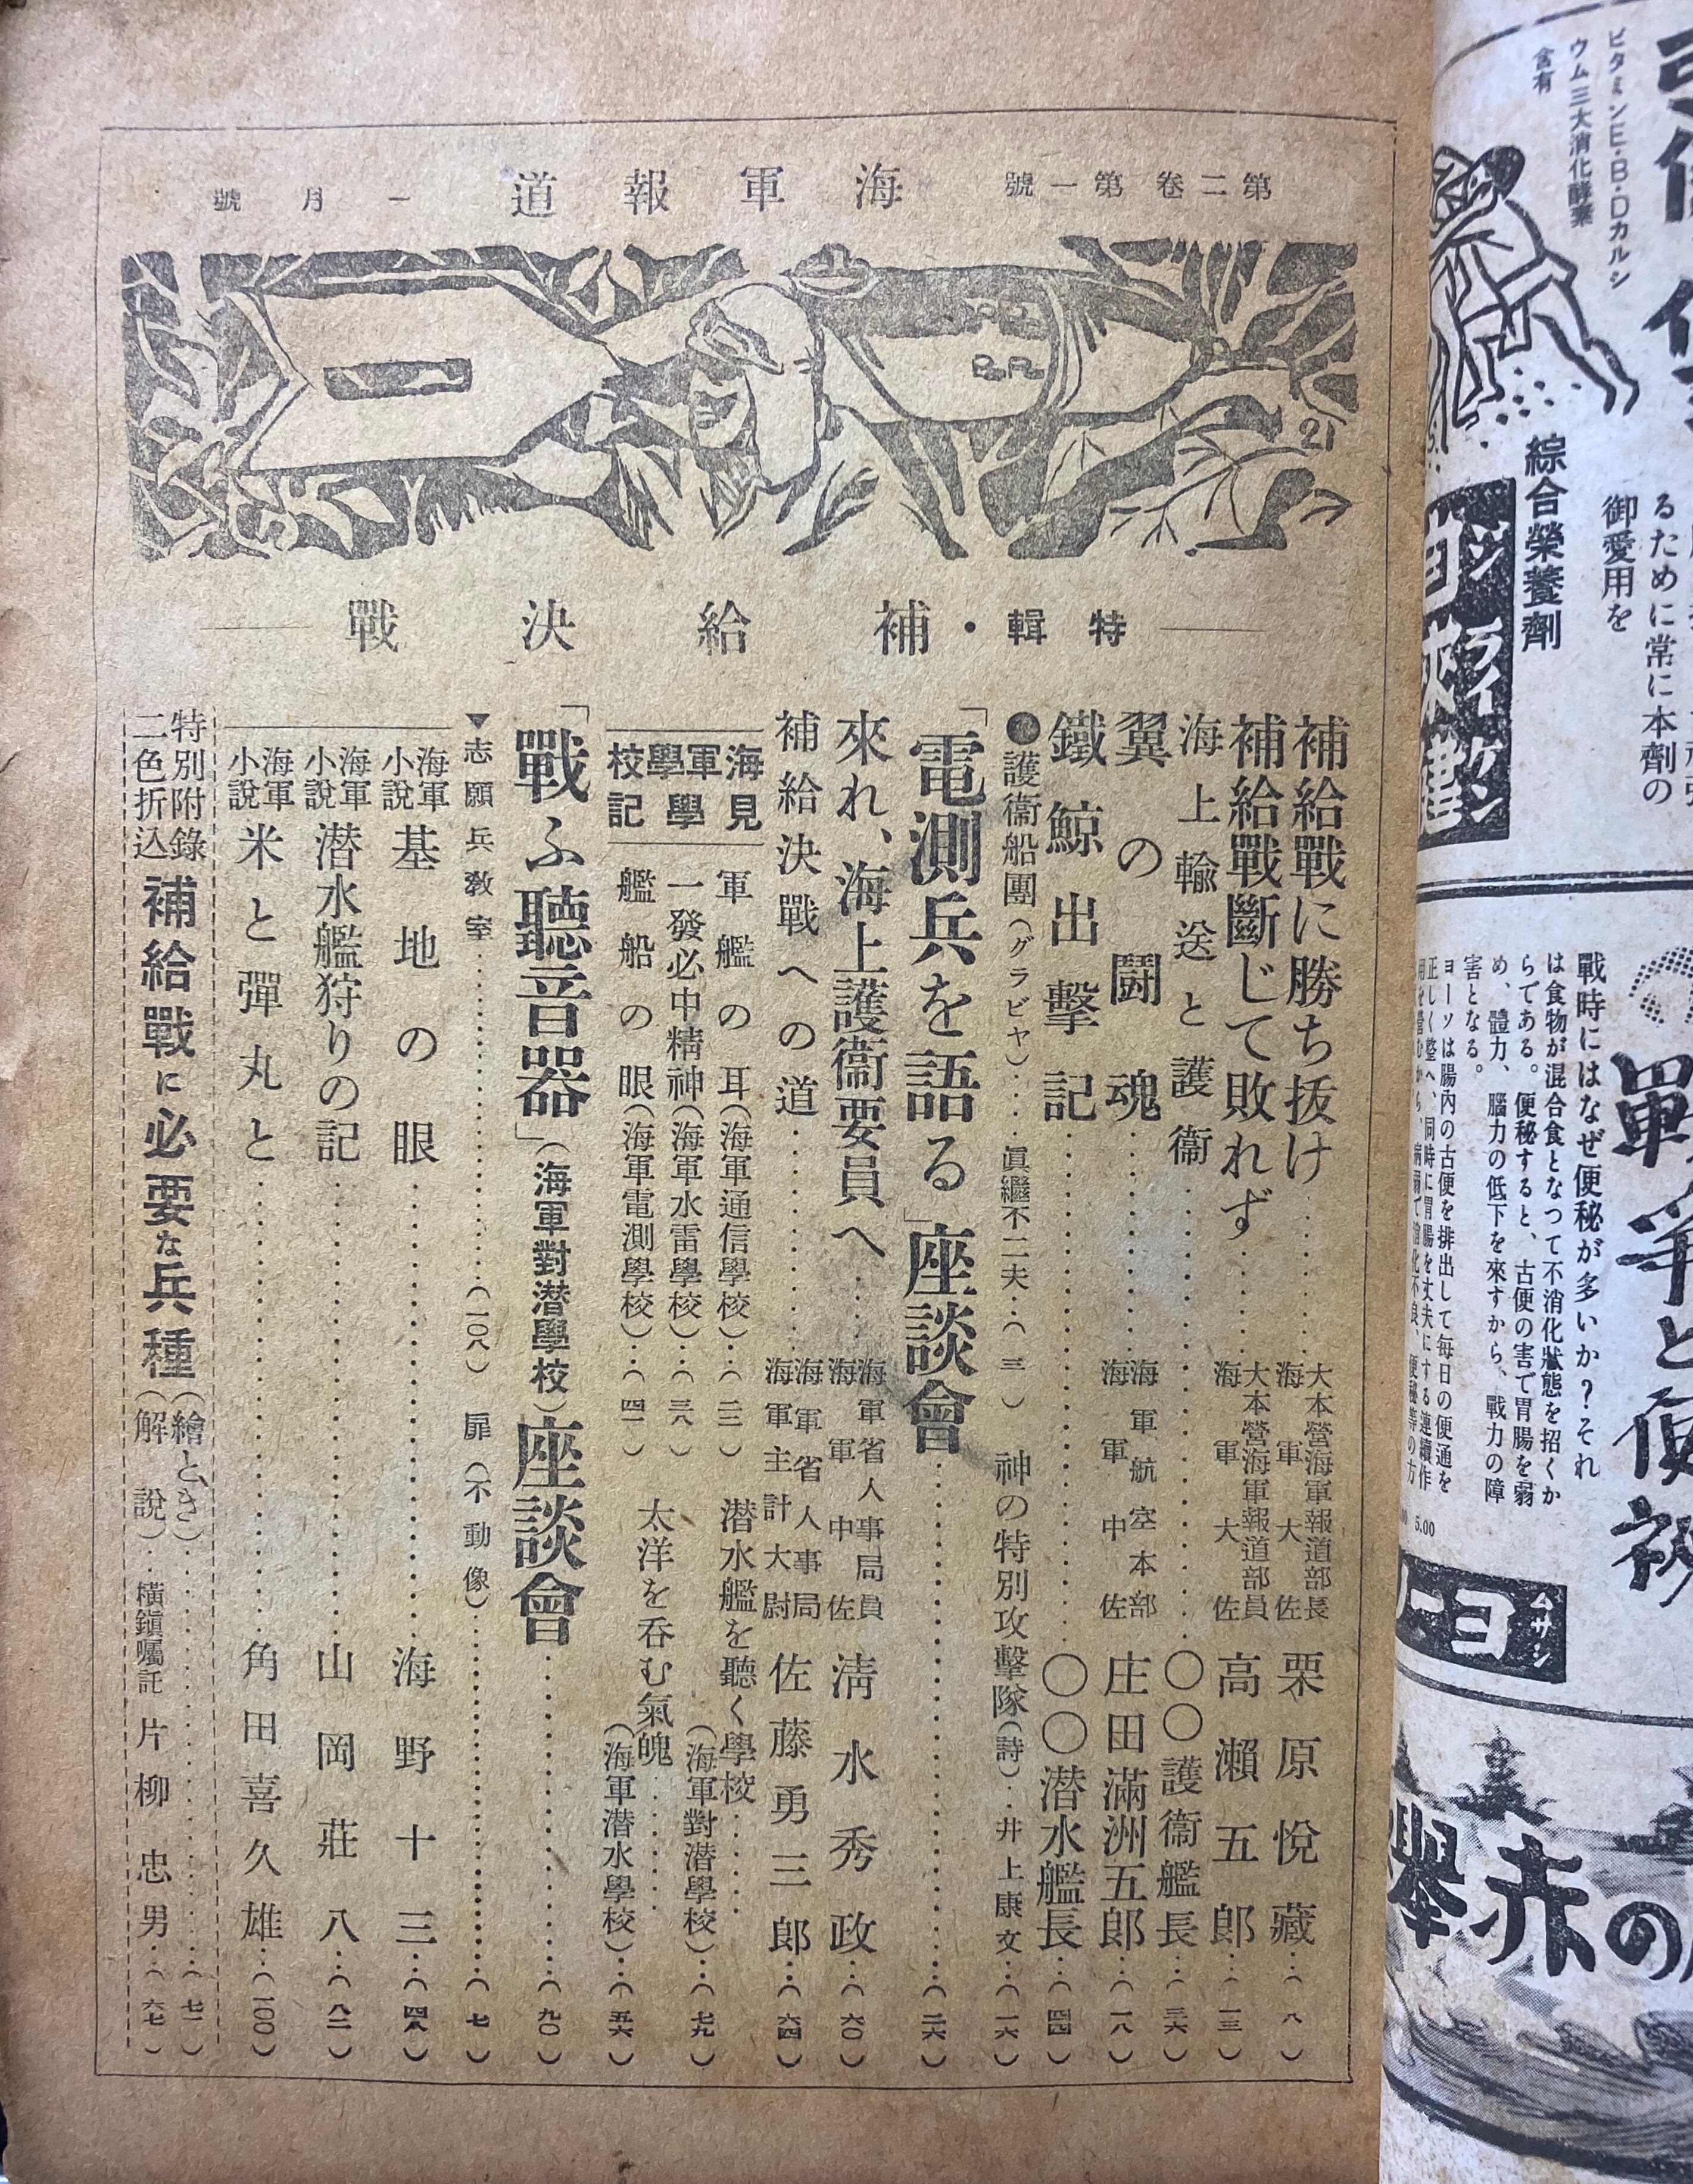 第二卷 第一號
海軍報道
一月號
21
特輯・補給決戰
補給戰に勝ち抜け……大本營海軍報道部長 海軍大佐 栗原悅藏…(八)
補給戰斷じて敗れず……大本營海軍報道部員 海軍大佐 高瀨五郎…(一三)
海上輸送と護衞……〇〇護衞艦長…(三六)
翼の鬪魂……海軍航空本部 海軍中佐 庄田滿洲五郎…(一八)
鐵鯨出擊記……〇〇潜水艦長…(四四)
護衞船團(グラビヤ)……眞繼不二夫…(三)
神の特別攻擊隊(詩)…井上康文…(一六)
「電測兵を語る」座談會……(二六)
來れ、海上護衞要員へ……海軍省人事局員 海軍中佐 淸水秀政…(六〇)
補給決戰への道……海軍省人事局 海軍主計大尉 佐藤勇三郎…(六四)
海軍學校見學記
軍艦の耳(海軍通信學校)…(二二)
一發必中精神(海軍水雷學校)…(三八)
艦船の眼(海軍電測學校)…(四一)
潜水艦を聽く學校……(海軍對潜學校)…(七九)
太洋を呑む氣魄……(海軍潜水學校)…(五六)
「戰ふ聽音器」(海軍對潜學校)座談會……(九〇)
▼志願兵教室……(一〇八)
扉(不動像)……(七)
海軍小說 基地の眼……海野十三…(四八)
海軍小說 潜水艦狩りの記……山岡莊八…(八二)
海軍小說 米と彈丸と……角田喜久雄…(一〇〇)
特別附錄 二色折込 補給戰に必要な兵種
(繪とき)……(七一)
(解說)…橫鎭囑託 片柳忠男…(六七)
ビタミンE・B・Dカルシ
ウム三大消化酵素
含有
綜合榮養劑
るために常に本劑の
御愛用を
戰爭と便祕
戰時にはなぜ便秘が多いか?それ
は食物が混合食となつて不消化狀態を招くか
らである。便秘すると、古便の害で胃腸を弱
め、體力、腦力の低下を來すから、戰力の障
害となる。
ヨーソは腸內の古便を排出して每日の便通を
正しく整へ、同時に胃腸を丈夫にする連續作
5.00
ムサシ
の赤